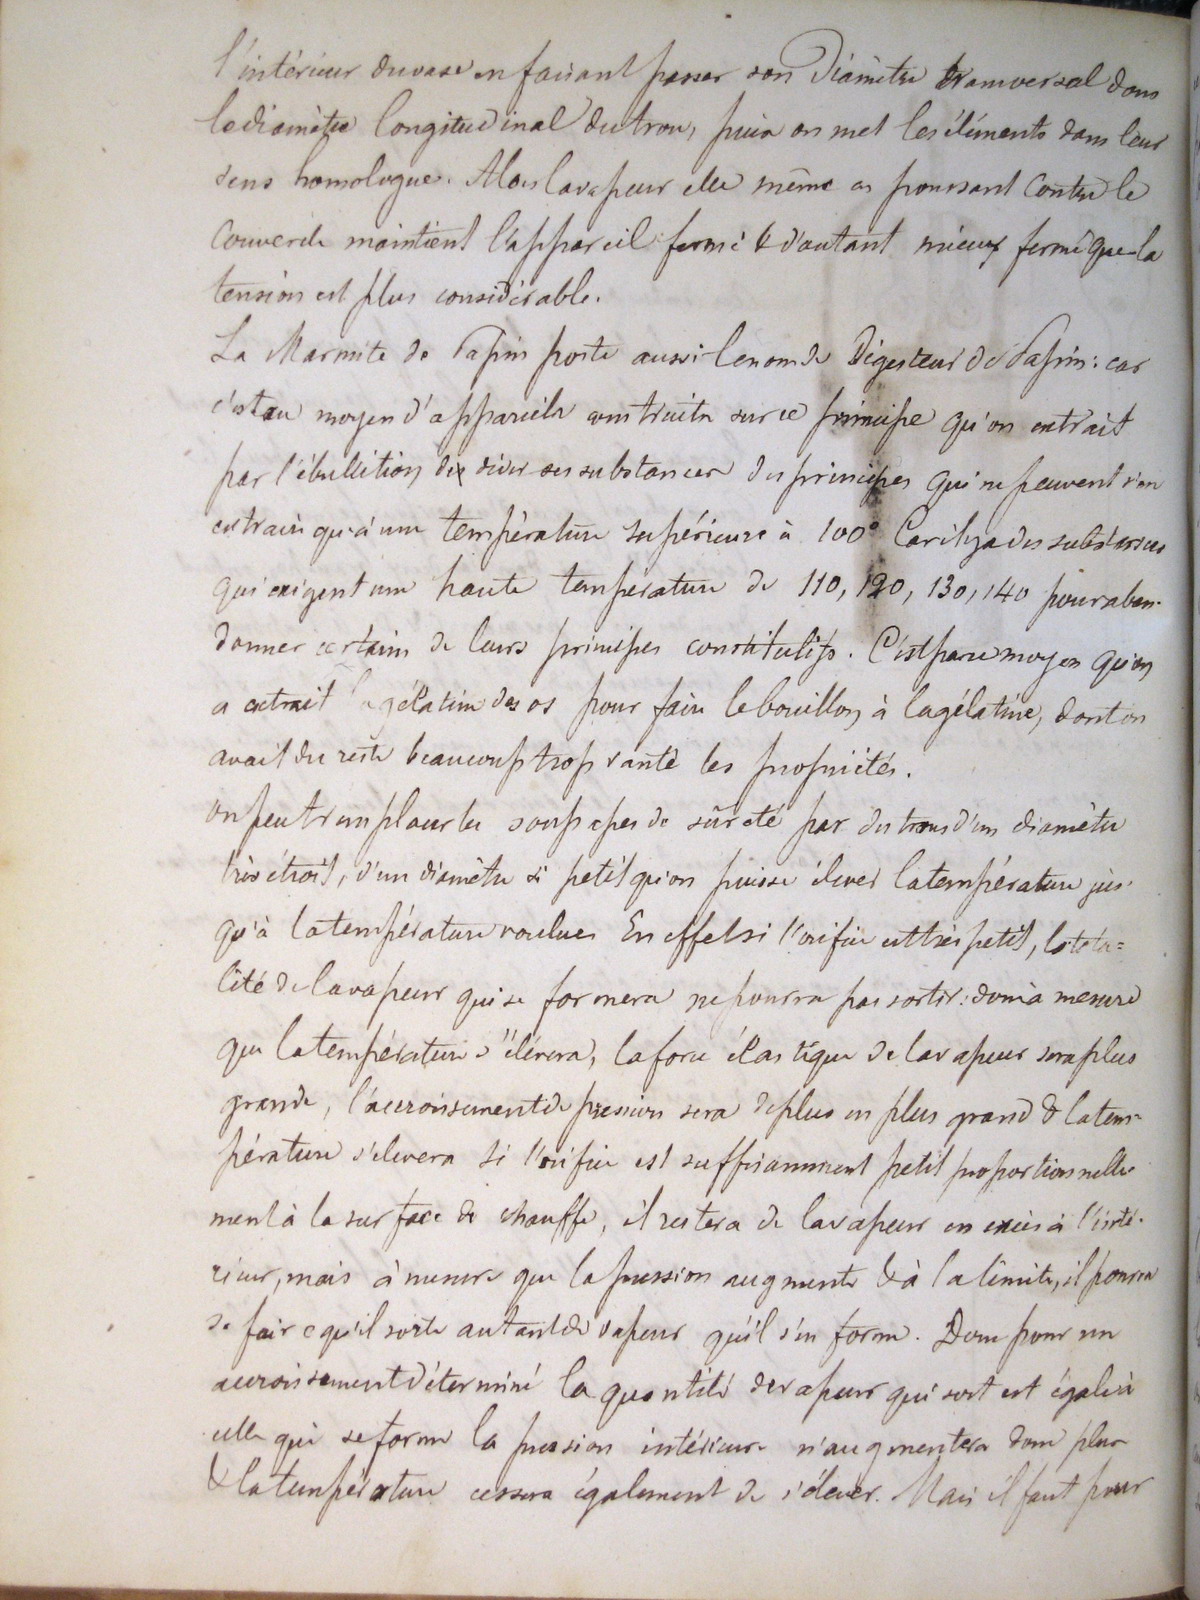 l'intérieur du vase en faisant passer son Diamètre transversal dans
le diamètre longitudinal du trou, puis on met les éléments dans leur
sens homologue. Alors la vapeur elle même en poussant contre le
couvercle maintient l'appareil fermé & d'autant mieux fermé que la
tension est plus considérable.
La Marmite de Papin porte aussi le nom de Digesteur de Papin : car
c'est au moyen d'appareils construits sur ce principe qu'on extrait
par l'ébullition de diverses substances des principes qui ne peuvent s'en
extraire qu'à une température supérieure à 100° Car il y a des substances
qui exigent une haute temperature de 110, 120, 130, 140 pour aban-
donner certains de leurs principes constitutifs. C'est par ce moyen qu'on
a extrait la gélatine des os pour faire le bouillon à la gélatine, dont on
avait du reste beaucoup trop vanté les propriétés.
On peut remplacer les soupapes de sûreté par des trous d'un diamètre
très étroit, d'un diamètre si petit qu'on puisse élever la température jus-
qu'à la température voulue. En effet si l'orifice est très petit, la tota=
lité de la vapeur qui se formera ne pourra pas sortir : donc à mesure
que la température s'élévera, la force élastique de la vapeur sera plus
grande, l'accroissement de pression sera de plus en plus grand & la tem-
pérature s'élevera si l'orifice est suffisamment petit proportionnelle
ment à la surface de chauffe, il restera de la vapeur en excès à l'inté-
rieur, mais à mesure que la pression augmente & à la limite, il pourra
se faire qu'il sorte autant de vapeur qu'il s'en forme. Donc pour un
accroissement déterminé la quantité de vapeur qui sort est égale à
celle qui se forme la pression intérieure n'augmentera donc plus
& la température cessera également de s'élever. Mais il faut pour